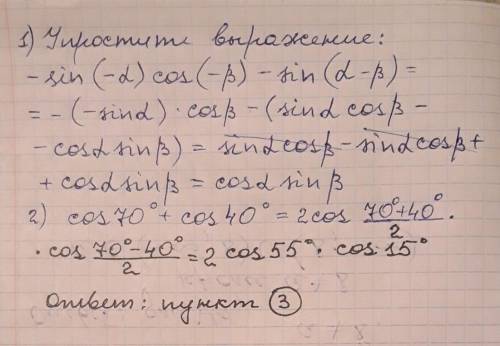 1) Упростите выражение:
- sin (-α) cos (-β) - sin (α - β) =
= - (- sin α) · cos β - (sin α cos β -
- cos α sin β) = sin α cos β - sin α cos β +
+ cos α sin β = cos α sin β
2) cos 70° + cos 40° = 2 cos (70°+40°)/2 ·
· cos (70°-40°)/2 = 2 cos 55° · cos 15°
Ответ: пункт ③